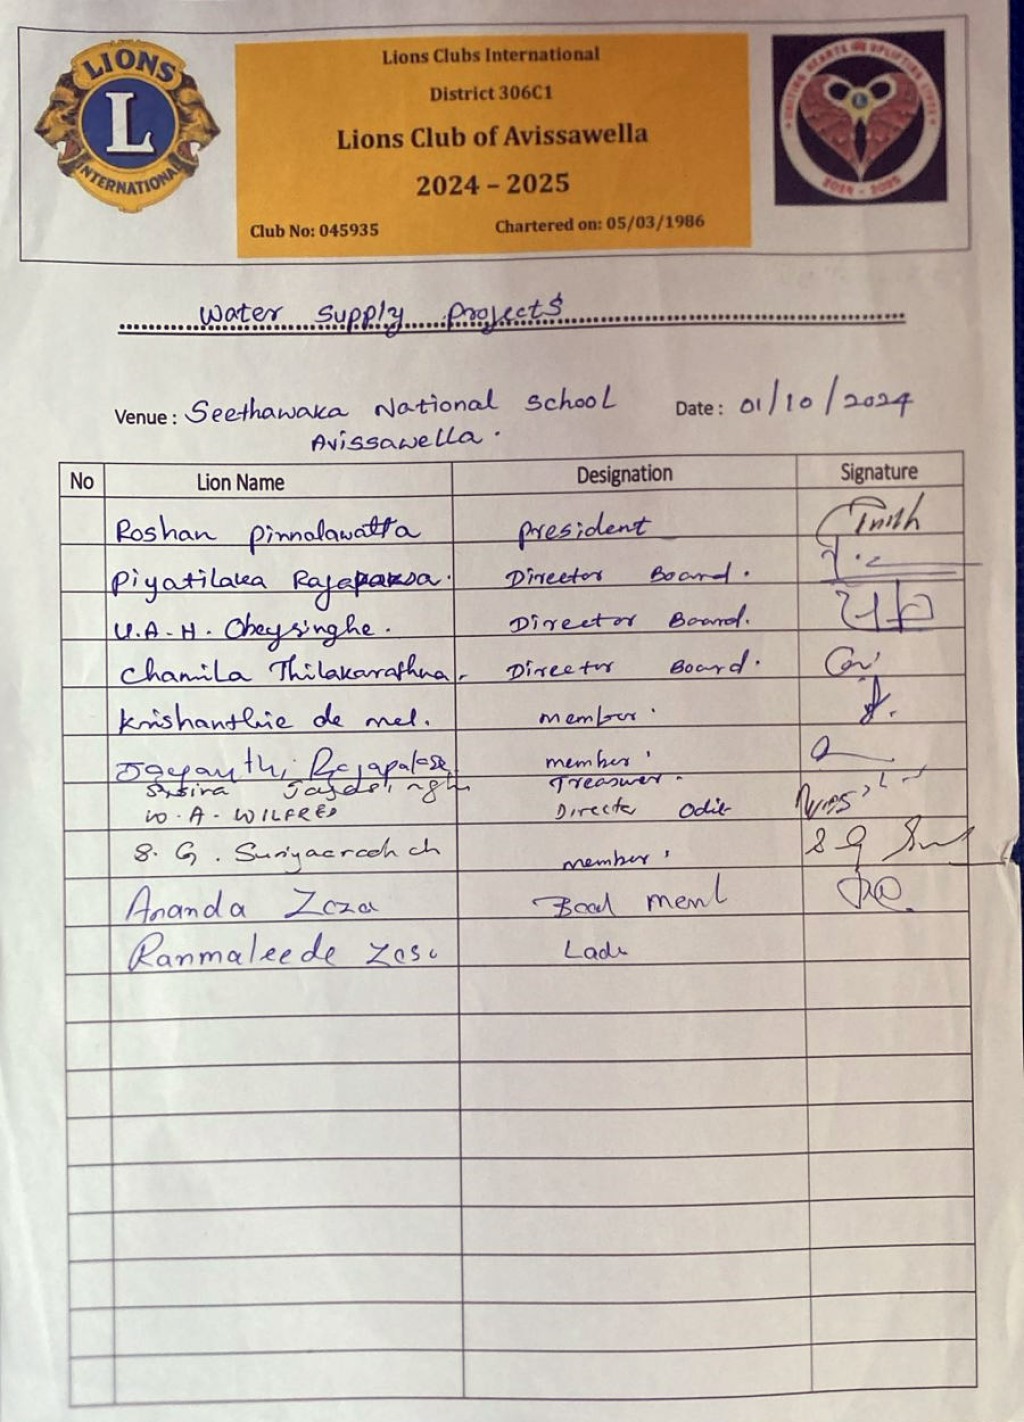 LIONS
L
INTERNATIONAL
Lions Clubs International
District 306C1
Lions Club of Avissawella
2024 – 2025
Club No: 045935 Chartered on: 05/03/1986
UNITING HEARTS UPLIFTING LIVES
2024 - 2025
Water Supply Projects
Venue : Seethawaka National School Date : 01/10/2024
Avissawella.
No Lion Name Designation Signature
Roshan Pinnalawatta President
Piyatilaka Rajapaksa. Director Board.
U.A.H. Obeysinghe. Director Board.
Chamila Thilakarathna. Director Board.
Krishanthie de mel. member.
Jayanthi Rajapakse member.
Treasurer.
W.A. WILFRED Directer Odit
S. G. Suriyaarachch member.
S G
Ananda Zoza
Ranmaleede